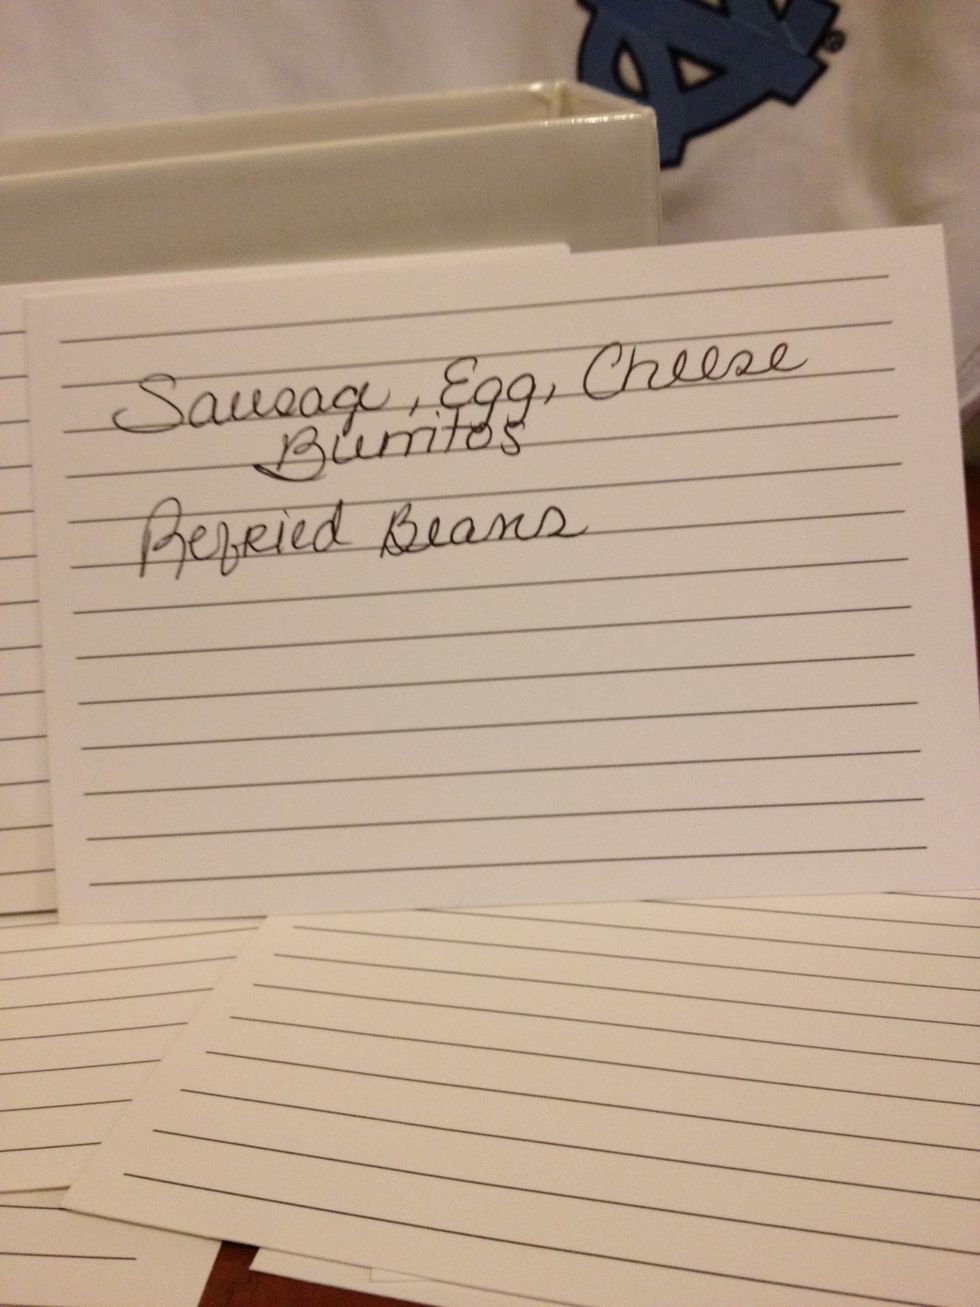 Sausage, Egg, Cheese
Burritos
Refried Beans